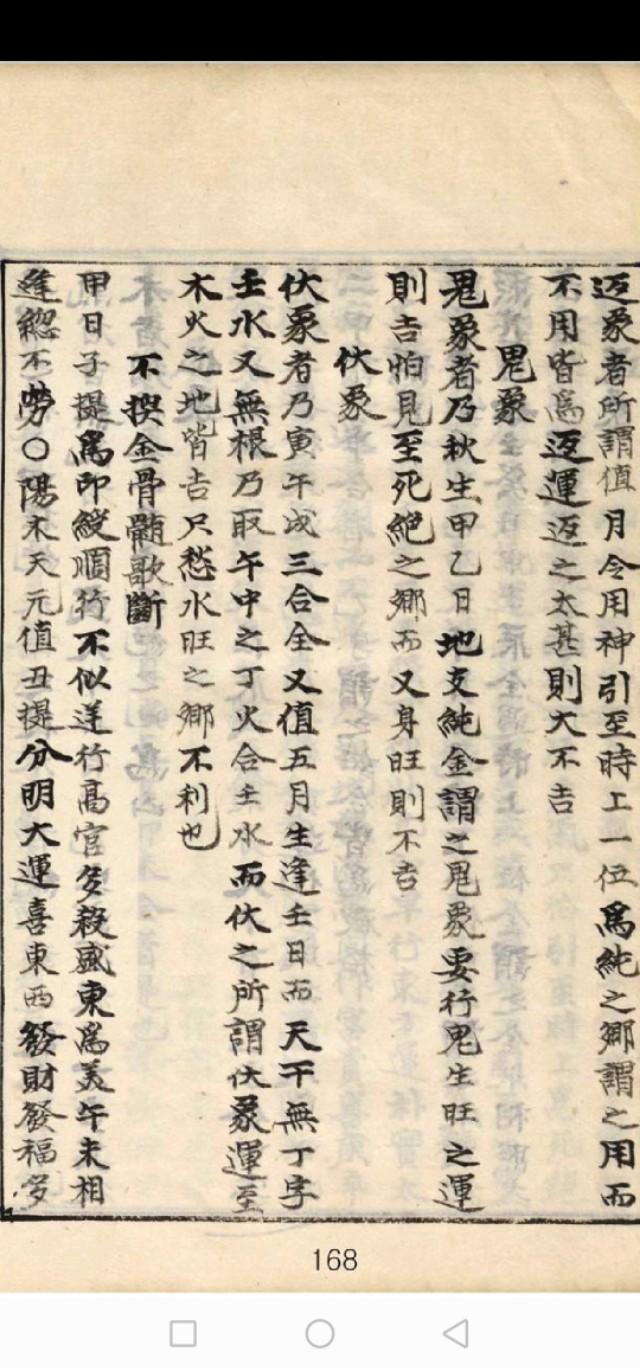 返象者所謂值月令用神引至時上一位為純之鄉謂之用而
不用皆爲返運返之太甚則大不吉
鬼象
鬼象者乃秋生甲乙日地支純金謂之鬼象要行鬼生旺之運
則吉怕見至死絕之鄉而又身旺則不吉
伏象
伏象者乃寅午戌三合全又值五月生逢壬日而天干無丁字
壬水又無根乃取午中之丁火合壬水而伏之所謂伏象運至
木火之地皆吉只愁水旺之鄉不利也
不換金骨髓歌斷
甲日子提爲印綬順行不似逆行高官多殺盛東爲美午未相
逢緫不勞〇陽木天元值丑提分明大運喜東西發財發福多
168